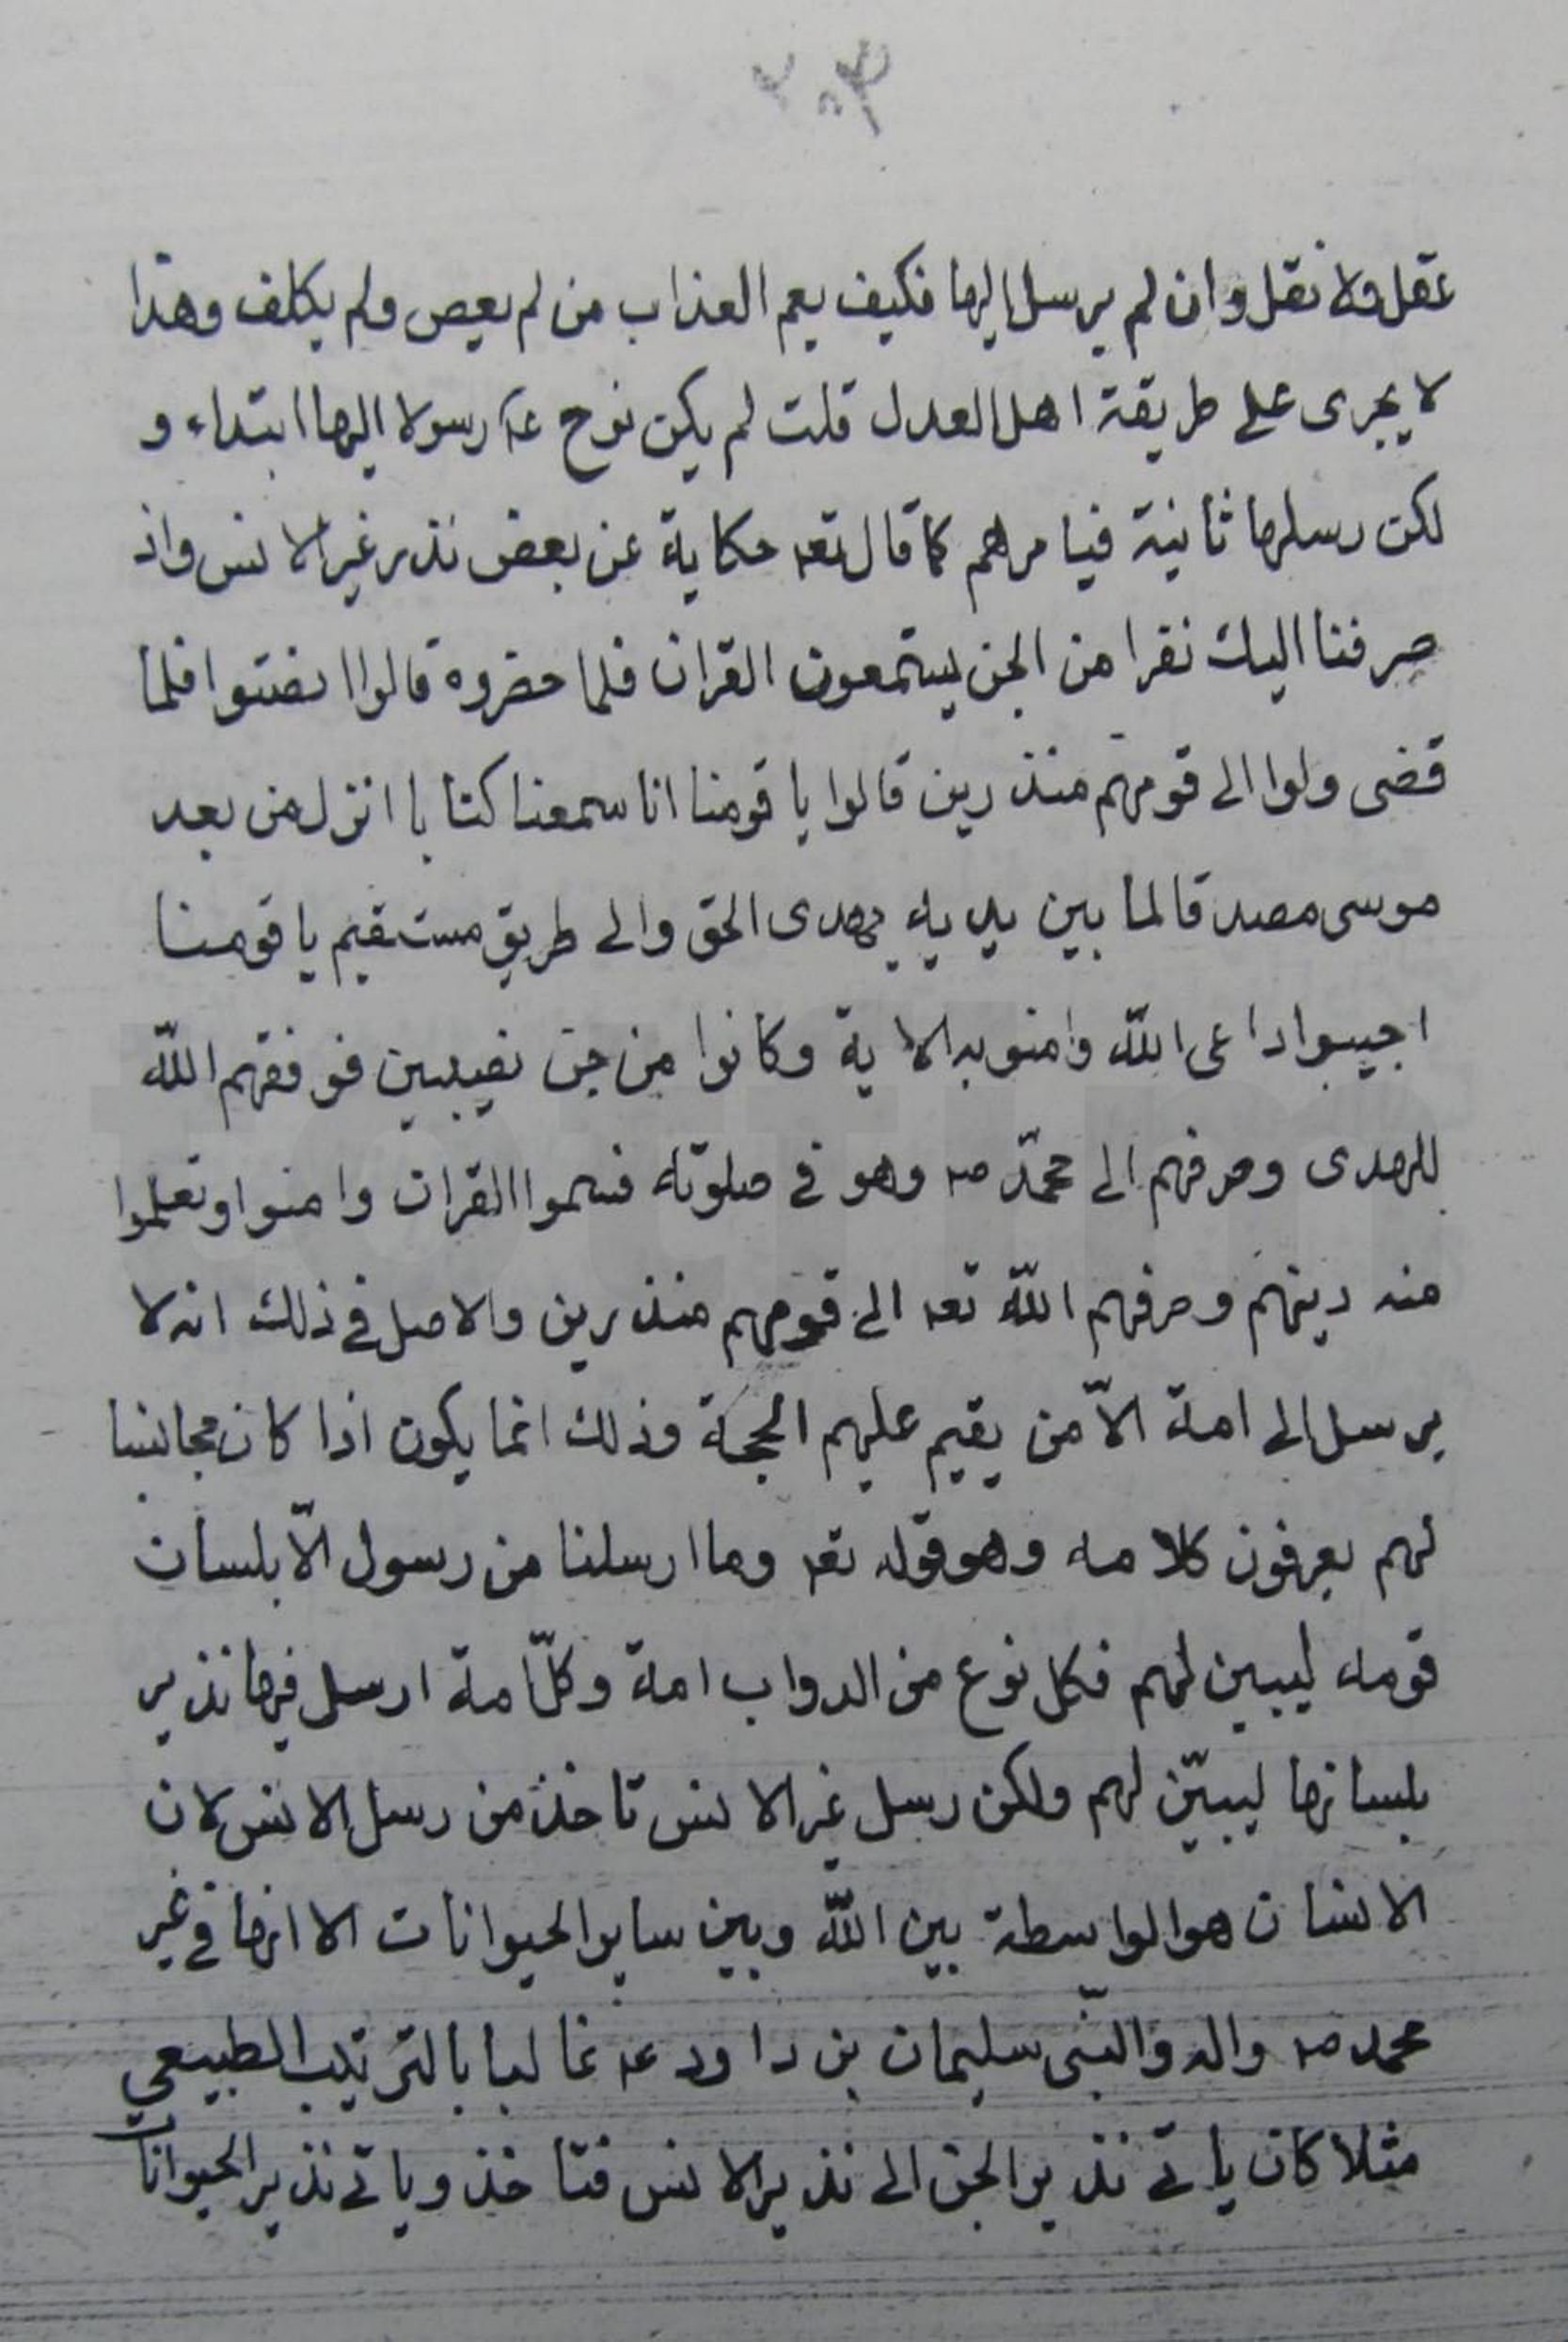 عقل ولا نقل وان لم يرسل اليها فكيف يعم العذاب من لم يعص ولم يكلف وهذا
لا يجرى على طريقة اهل العدل قلت لم يكن نوح عليه رسولا اليها ابتداء و
لكن رسلها ثانية فيامرهم كما قال تعه حكاية عن بعض نذر غير الانس واذ
صرفنا اليك نفرا من الجن يستمعون القران فلما حضروه قالوا انصتوا فلما
قضى ولوا الى قومهم منذرين قالوا يا قومنا انا سمعنا كتابا انزل من بعد
موسى مصدقا لما بين يديه يهدى الحق والى طريق مستقيم يا قومنا
اجيبوا داعى اللّه وامنو به الاية وكانوا من جن نصيبين فوفقهم اللّه
للهدى وصرفهم الى محمّد صه وهو فى صلوته فسمعوا القران وامنوا وتعلموا
منه دينهم وصرفهم اللّه تعه الى قومهم منذرين والاصل فى ذلك انه لا
يرسل الى امة الاّ من يقيم عليهم الحجة وذلك انما يكون اذا كان مجانسا
لهم يعرفون كلامه وهو قوله تعه وما ارسلنا من رسول الاّ بلسان
قومه ليبين لهم فكل نوع من الدواب امة وكلّ امة ارسل فيها نذير
بلسانها ليبيّن لهم ولكن رسل غير الانس تاخذ من رسل الانس لان
الانسان هو الواسطة بين اللّه وبين ساير الحيوانات الا انها فى غير
محمد صه واله والنبّى سليمان بن داود عه غالبا بالترتيب الطبيعي
مثلا كان ياتى نذير الجن الى نذير الانس فتاخذ وياتى نذير الحيوانات